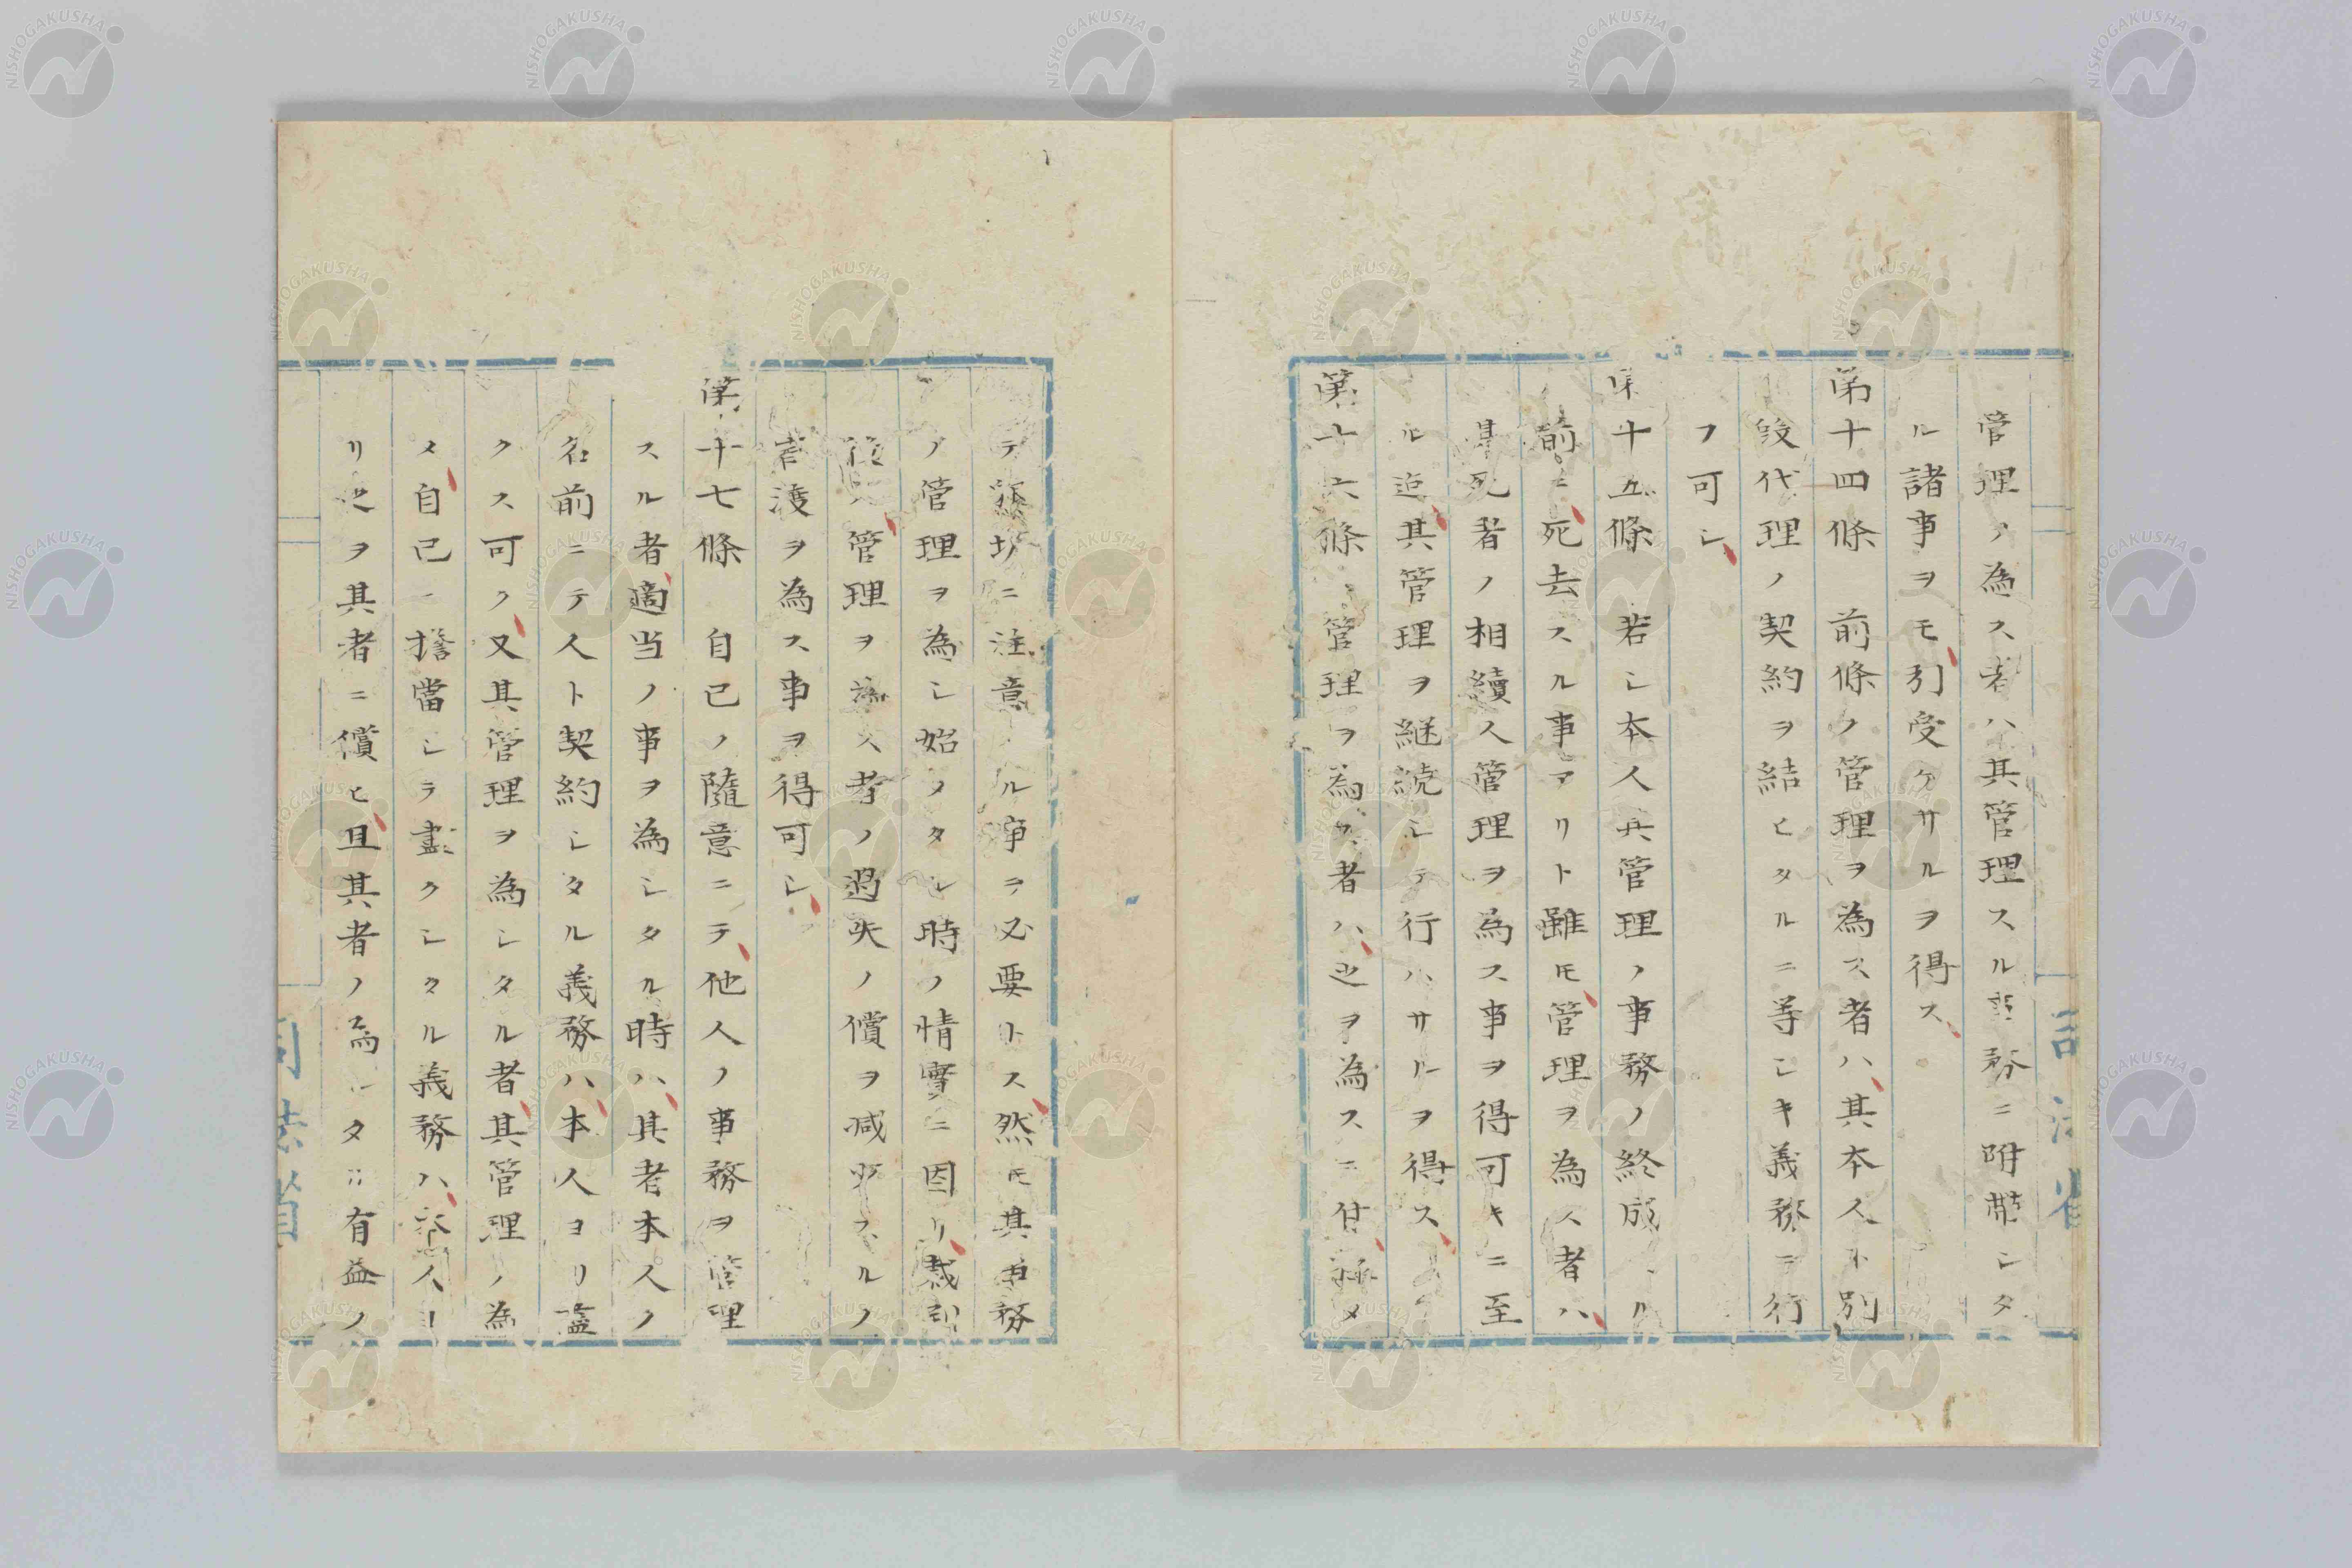 管理ノ為ス者ハ其管理スル事務ニ附帯シタ
ル諸事ヲモ引受ケサルヲ得ス
第十四條 前條ノ管理ヲ為ス者ハ其本人ト別
段代理ノ契約ヲ結ヒタルニ等シキ義務ヲ行
フ可シ
第十五條 若シ本人其管理ノ事務ノ終成 ル
前ニ死去スル事アリト雖モ管理ヲ為ス者ハ
其死者ノ相續人管理ヲ為ス事ヲ得可キニ至
ル迄其管理ヲ継続シテ行ハサルヲ得ス
第十六條 管理ヲ為ス者ハ之ヲ為スニ付 メ
テ 切ニ注意 ル事ヲ必要トス然モ其事務
ノ管理ヲ為シ始メタル時ノ情實ニ因リ裁判
役ハ管理ヲ為ス者ノ過失ノ償ヲ減少スルノ
言渡ヲ為ス事ヲ得可シ
第十七條 自己ノ隨意ニテ他人ノ事務ヲ管理
スル者適当ノ事ヲ為シタル時ハ其者本人ノ
名前ニテ人ト契約シタル義務ハ本人ヨリ盡
クス可ク又其管理ヲ為シタル者其管理ノ為
メ自己ニ擔當シテ盡クシタル義務ハ本人ヨ
リ之ヲ其者ニ償ヒ且其者ノ為シタル有益ノ
司法省
司法省
NISHOGAKUSHA